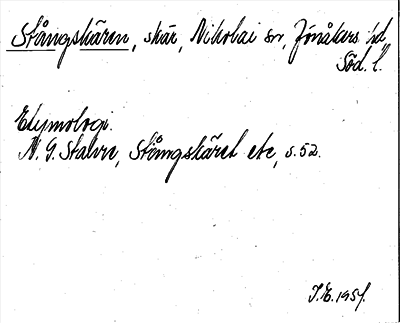 Stångskären, skär, Nikolai sn, Jönåkers hd
Söd. l.
Etymologi.
N. G. Stahre, Stångskäret etc, s. 52.
J.E. 1957.